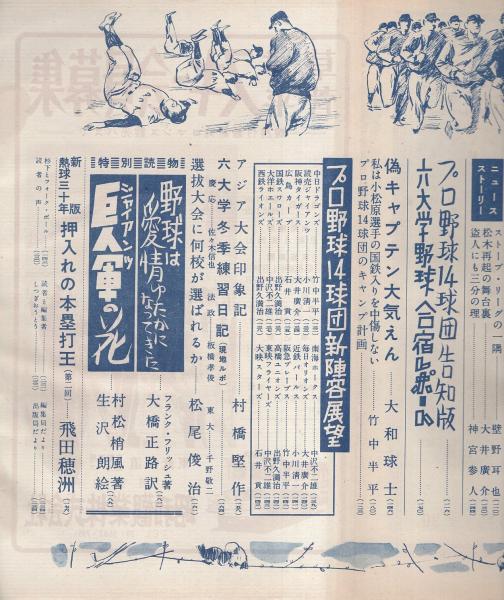 ニュース
ストーリー
ストーブ・リーグの一隅
松木再起の舞台裏
盗人にも三分の理
壁野耳也
大井廣介
神宮参人
プロ野球14球団告知版
六大学野球合宿レポート
偽キャプテン大気えん
大和球士
私は小松原選手の国鉄入りを中傷しない
竹中半平
プロ野球14球団のキャンプ計画
プロ野球14球団新陣容展望
中日ドラゴンズ
竹中半平
読売ジャイアンツ
小川清一
阪神タイガース
大井廣介
広島カープ
石井貢
国鉄スワローズ
出野久満治
大洋ホエールズ
中沢不二雄
西鉄ライオンズ
出野久満治
南海ホークス
中沢不二雄
毎日オリオンズ
大井廣介
近鉄パールス
小川清一
阪急ブレーブス
竹中半平
高橋ユニオンズ
出野久満治
東映フライヤーズ
中沢不二雄
大映スターズ
石井貢
アジア大会印象記
村橋堅作
六大学冬季練習日記(現場ルポ)
慶応
佐々木信也
法政
板橋孝俊
東大
千野敬二
選抜大会に何校が選ばれるか
松尾俊治
特別読物
野球は愛情ゆたかになってきた
フランク・フリッシュ著
大橋正路訳
巨人軍の花
ジャイアンツ
村松梢風著
生沢朗絵
新版
熱球三十年
押入れの本塁打王(第二回)
飛田穂洲
杉下とフォーク・ボール
読者の声
読者と編集者
しつぎおうとう
編集局だより
出版局だより